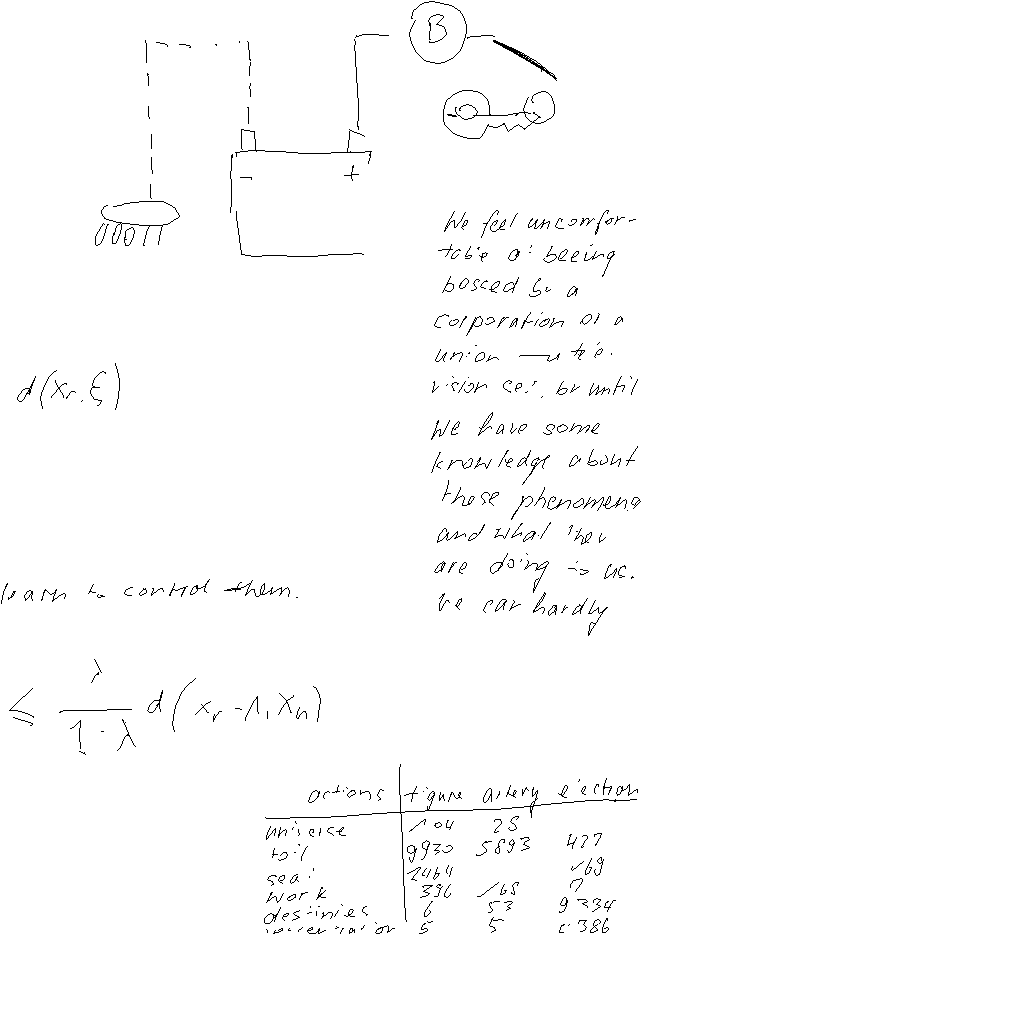 B
- +
We feel uncomfor-
table at beeing
bossed by a
corporation or a
union
vision set, but until
We have some
knowledge about
these phenomena
and what they
are doing to us.
We can hardly
d(xr, ξ)
learn to control them.
≤ λ / 1 - λ d(xr-1, Xn)
actions figure artery ejection
universe 104 25
toil 9930 5893 427
seat 2464 169
work 396 165 7
destinies 6 53 9334
5 5 386